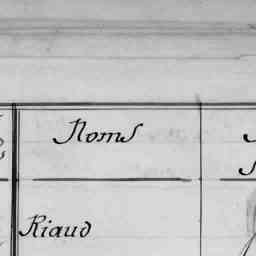 Noms
Riaud